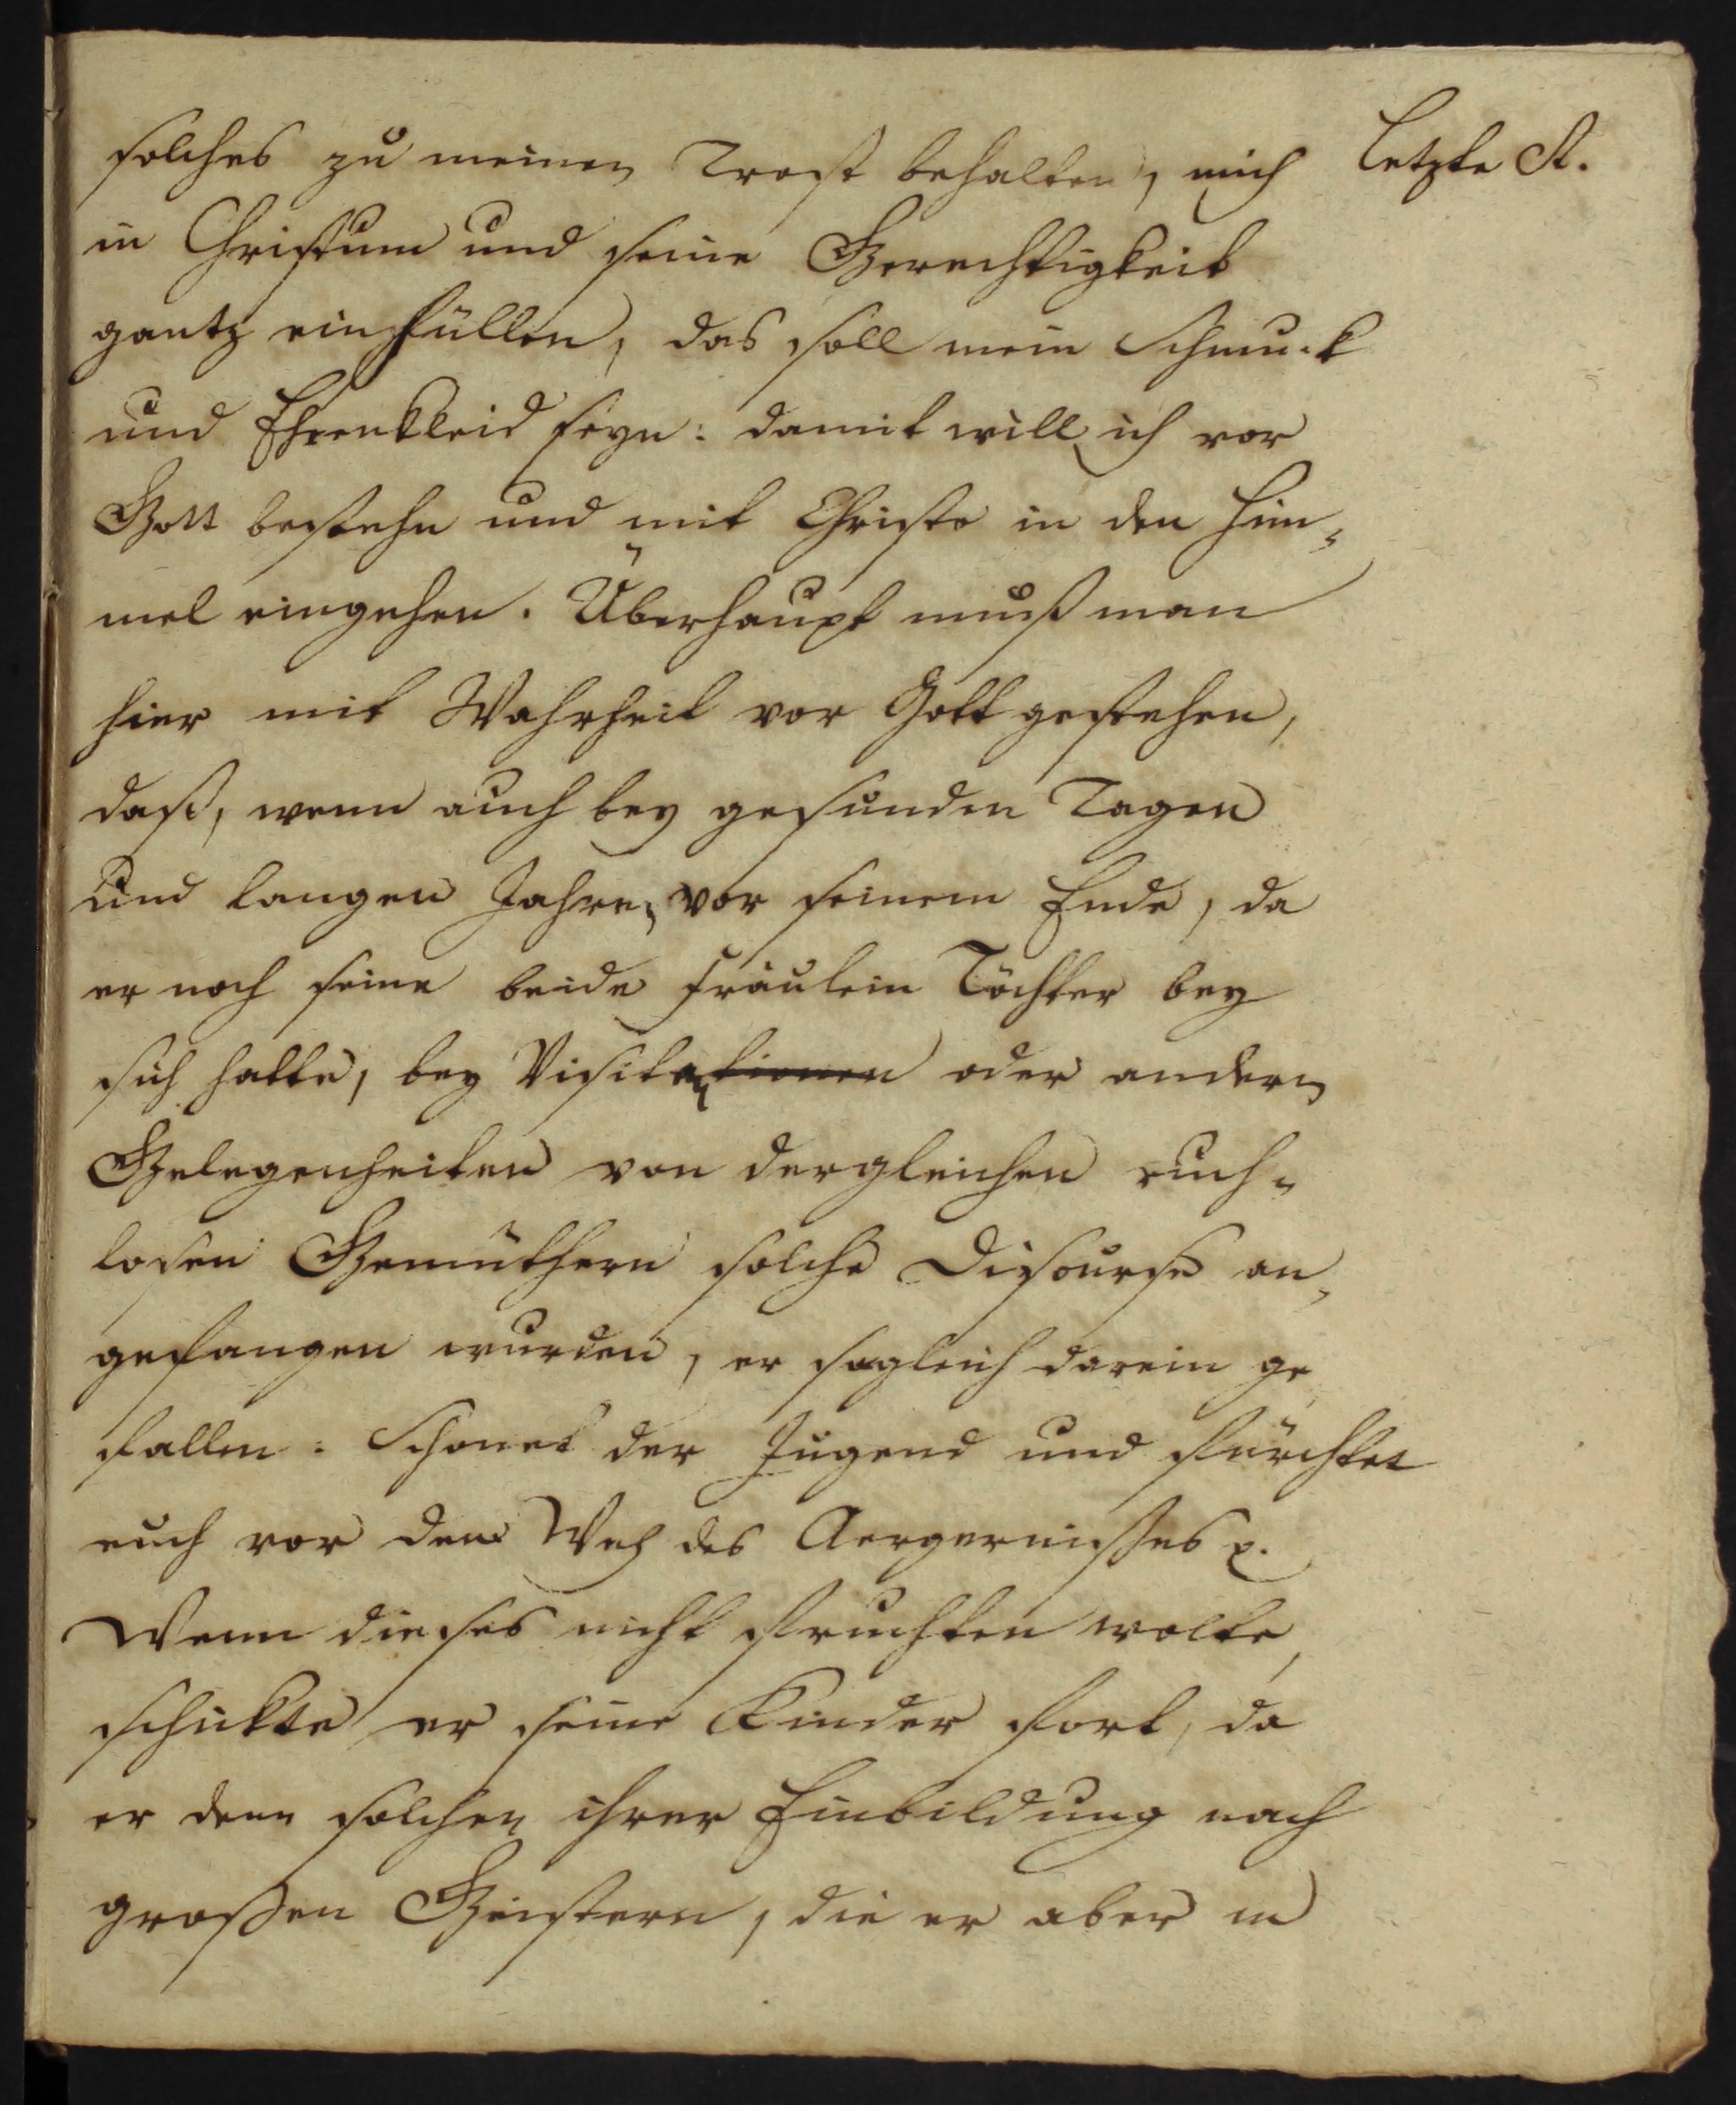 solches zu meinen Trost behalten, mich
letzte St.
in Christum und seine Gerechtigkeit
gantz einhüllen, das soll mein Schmuck
und Ehrenkleid seyn: damit will ich vor
Gott bestehn und mit Christo in den Him-
mel eingehen. Überhaupt muß man
hier mit Wahrheit vor Gott gestehen,
daß, wenn auch bey gesunden Tagen
und langen Jahren vor seinem Ende, da
er noch seine beide Fräulein Töchter bey
sich hatte, bey Visitationen oder andern
Gelegenheiten von dergleichen ruch-
losen Gemüthern solche Discourse an-
gefangen wurden, er sogleich darein ge
fallen: Schonet der Jugend und fürchtet
euch vor dem Weh des Aergernißes p.
Wenn dieses nicht fruchten wolte,
schickte er seine Kinder fort, da
er denn solchen ihrer Einbildung nach
großen Geistern, die er aber in